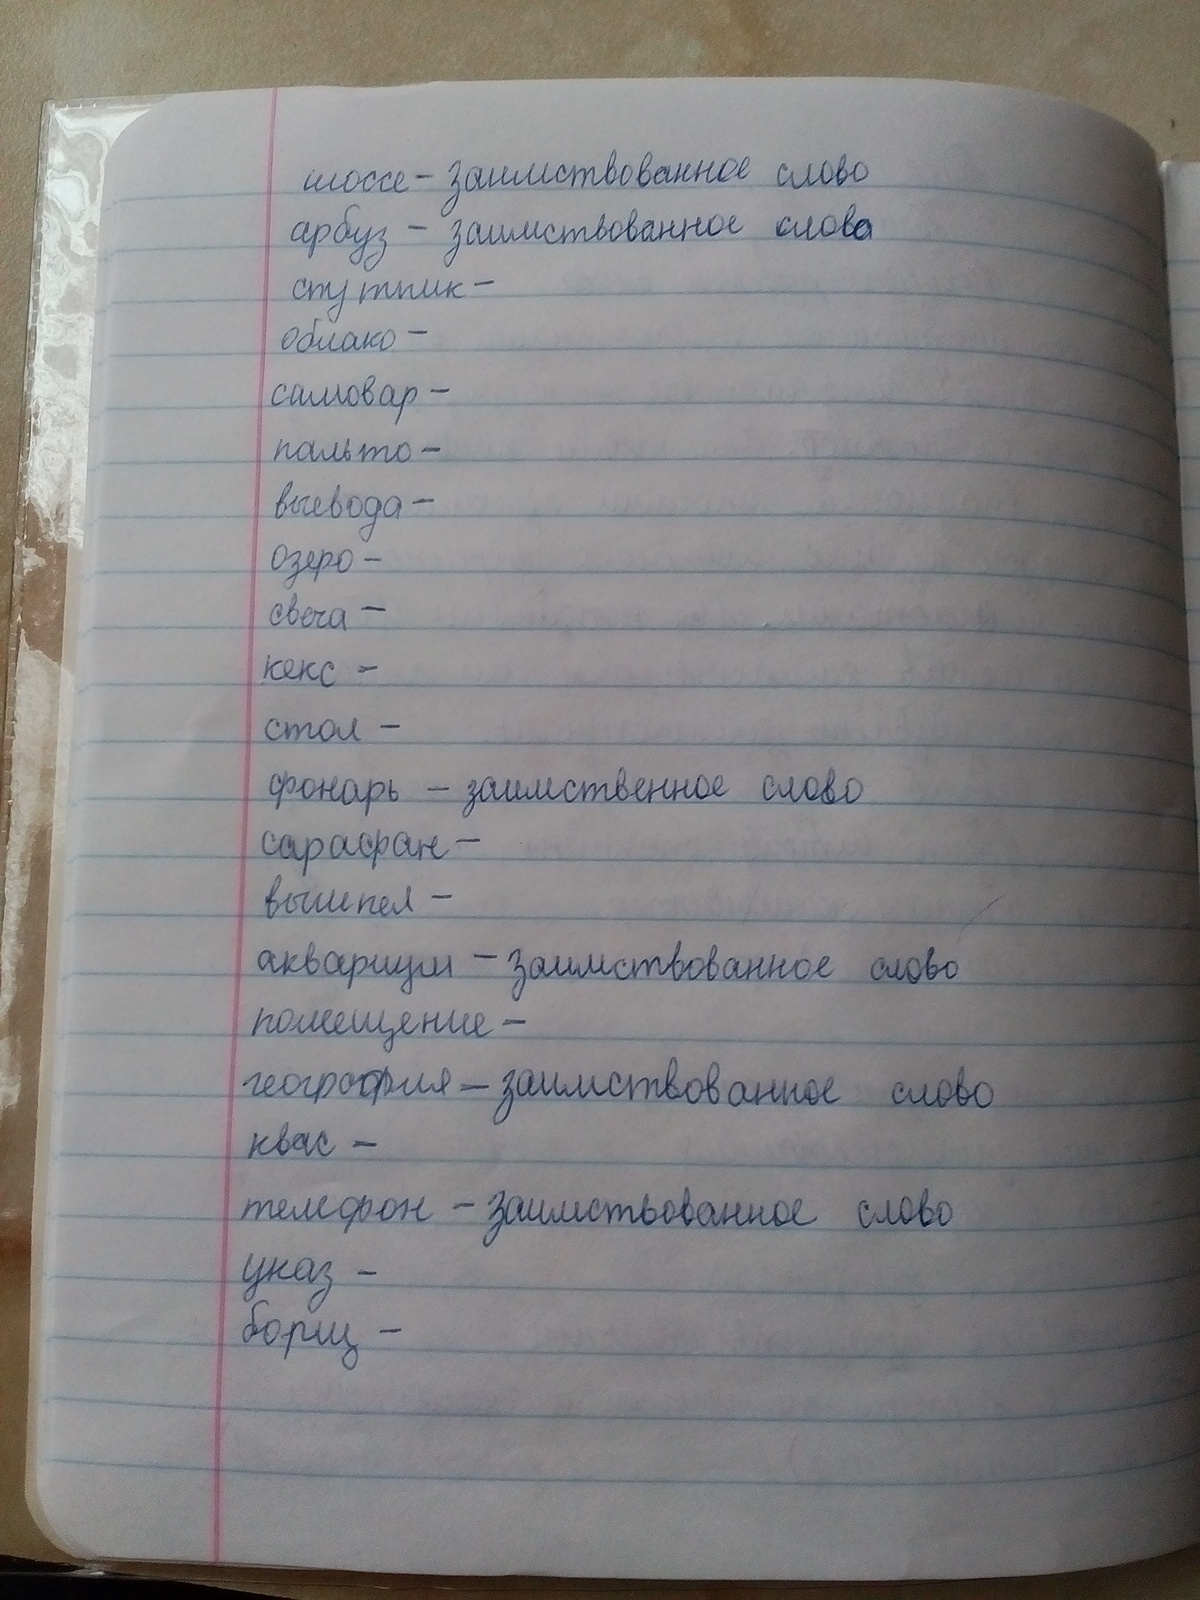 шоссе - заимствованное слово
арбуз - заимствованное слова
спутник -
облако -
самовар -
пальто -
выевода -
озеро -
свеча -
кекс -
стол -
фонарь - заимственное слово
сарафан -
вымпел -
аквариум - заимствованное слово
помещение -
география - заимствованное слово
квас -
телефон - заимствованное слово
указ -
борщ -